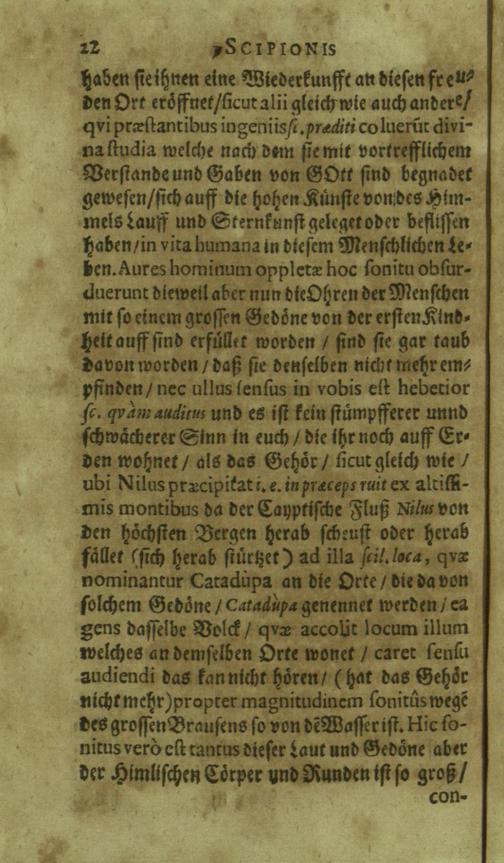 22 SCIPIONIS
haben sie ihnen eine Wiederkunfft an diesen freu⸗
den Ort eröffnet/sicut alii gleich wie auch andere/
qvi præstantibus ingeniis sc. præditi coluerūt divi-
na studia welche nach dem sie mit vortrefflichem
Verstande und Gaben von GOtt sind begnadet
gewesen/sich auff die hohen Künste von des Him-
mels Lauff und Sternkunst geleget oder beflissen
haben/in vita humana in diesem Menschlichen Le⸗
ben. Aures hominum oppletæ hoc sonitu obsur-
duerunt dieweil aber nun die Ohren der Menschen
mit so einem grossen Gedöne von der ersten Kind⸗
heit auff sind erfüllet worden / sind sie gar taub
davon worden/ daß sie denselben nicht mehr em⸗
pfinden / nec ullus sensus in vobis est hebetior
sc. qvàm auditus und es ist kein stümpfferer unnd
schwächerer Sinn in euch / die ihr noch auff Er⸗
den wohnet / als das Gehör / sicut gleich wie /
ubi Nilus præcipitat i. e. in præceps ruit ex altissi-
mis montibus da der Egyptische Fluß Nilus von
den höchsten Bergen herab scheust oder herab
fället (sich herab stürtzet) ad illa scil. loca, qvæ
nominantur Catadùpa an die Orte / die da von
solchem Gedöne / Catadùpa genennet werden / ea
gens dasselbe Volck / qvæ accolit locum illum
welches an demselben Orte wonet / caret sensu
audiendi das kan nicht hören / (hat das Gehör
nicht mehr) propter magnitudinem sonitûs wegē
des grossen Brausens so von dē Wasser ist. Hic so-
nitus verò est tantus dieser Laut und Gedöne aber
der Himlischen Cörper und Runden ist so groß/
con-